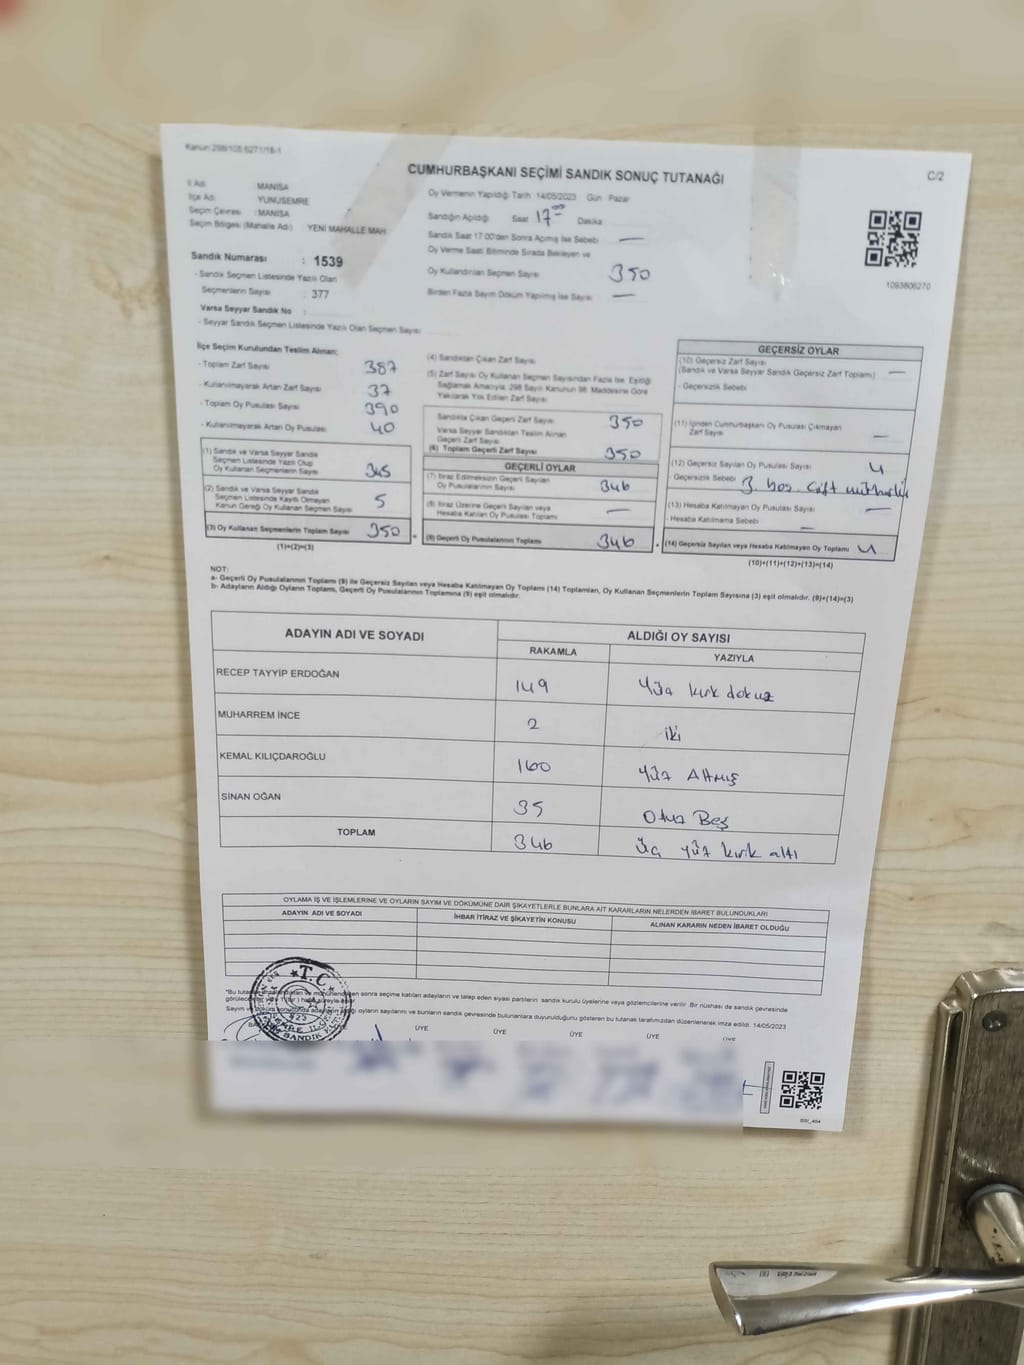 Kanun 298/105 6271/18-1
CUMHURBAŞKANI SEÇİMİ SANDIK SONUÇ TUTANAĞI
C/2
İl Adı MANİSA
İlçe Adı YUNUSEMRE
Seçim Çevresi : MANİSA
Seçim Bölgesi (Mahalle Adı) YENİ MAHALLE MAH.
Sandık Numarası : 1539
- Sandık Seçmen Listesinde Yazılı Olan
Seçmenlerin Sayısı : 377
Varsa Seyyar Sandık No :
- Seyyar Sandık Seçmen Listesinde Yazılı Olan Seçmen Sayısı
Oy Vermenin Yapıldığı Tarih 14/05/2023 Gün Pazar
Sandığın Açıldığı Saat 17 00 Dakika
Sandık Saat 17:00'den Sonra Açılmış İse Sebebi —
Oy Verme Saati Bitiminde Sırada Bekleyen ve
Oy Kullandırılan Seçmen Sayısı 350
Birden Fazla Sayım Döküm Yapılmış İse Sayısı —
1093806270
İlçe Seçim Kurulundan Teslim Alınan;
- Toplam Zarf Sayısı 387
- Kullanılmayarak Artan Zarf Sayısı 37
- Toplam Oy Pusulası Sayısı 390
- Kullanılmayarak Artan Oy Pusulası 40
(1) Sandık ve Varsa Seyyar Sandık
Seçmen Listesinde Yazılı Olup
Oy Kullanan Seçmenlerin Sayısı 345
(2) Sandık ve Varsa Seyyar Sandık
Seçmen Listesinde Kayıtlı Olmayan
Kanun Gereği Oy Kullanan Seçmen Sayısı 5
(3) Oy Kullanan Seçmenlerin Toplam Sayısı 350
(1)+(2)=(3)
(4) Sandıktan Çıkan Zarf Sayısı
(5) Zarf Sayısı Oy Kullanan Seçmen Sayısından Fazla İse, Eşitliği
Sağlamak Amacıyla, 298 Sayılı Kanunun 98. Maddesine Göre
Yakılarak Yok Edilen Zarf Sayısı
Sandıkta Çıkan Geçerli Zarf Sayısı 350
Varsa Seyyar Sandıktan Teslim Alınan
Geçerli Zarf Sayısı
(6) Toplam Geçerli Zarf Sayısı 350
GEÇERLİ OYLAR
(7) İtiraz Edilmeksizin Geçerli Sayılan
Oy Pusulalarının Sayısı 346
(8) İtiraz Üzerine Geçerli Sayılan veya
Hesaba Katılan Oy Pusulası Toplamı —
(9) Geçerli Oy Pusulalarının Toplamı 346
GEÇERSİZ OYLAR
(10) Geçersiz Zarf Sayısı
(Sandık ve Varsa Seyyar Sandık Geçersiz Zarf Toplamı) —
- Geçersizlik Sebebi
(11) İçinden Cumhurbaşkanı Oy Pusulası Çıkmayan
Zarf Sayısı —
(12) Geçersiz Sayılan Oy Pusulası Sayısı 4
- Geçersizlik Sebebi 3. boş. Çift mühürlük
(13) Hesaba Katılmayan Oy Pusulası Sayısı —
- Hesaba Katılmama Sebebi —
(14) Geçersiz Sayılan veya Hesaba Katılmayan Oy Toplamı 4
(10)+(11)+(12)+(13)=(14)
NOT:
a- Geçerli Oy Pusulalarının Toplamı (9) ile Geçersiz Sayılan veya Hesaba Katılmayan Oy Toplamı (14) Toplamları, Oy Kullanan Seçmenlerin Toplam Sayısına (3) eşit olmalıdır. (9)+(14)=(3)
b- Adayların Aldığı Oyların Toplamı, Geçerli Oy Pusulalarının Toplamına (9) eşit olmalıdır.
ADAYIN ADI VE SOYADI ALDIĞI OY SAYISI
RAKAMLA YAZIYLA
RECEP TAYYİP ERDOĞAN 149 Yüz kırk dokuz
MUHARREM İNCE 2 iki
KEMAL KILIÇDAROĞLU 160 yüz Altmış
SİNAN OĞAN 35 Otuz Beş
TOPLAM 346 Üç yüz kırk altı
OYLAMA İŞ VE İŞLEMLERİNE VE OYLARIN SAYIM VE DÖKÜMÜNE DAİR ŞİKAYETLERLE BUNLARA AİT KARARLARIN NELERDEN İBARET BULUNDUKLARI
ADAYIN ADI VE SOYADI İHBAR İTİRAZ VE ŞİKAYETİN KONUSU ALINAN KARARIN NEDEN İBARET OLDUĞU
sonra seçime katılan adayların ve talep eden siyasi partilerin sandık kurulu üyelerine veya gözlemcilerine verilir. Bir nüshası da sandık çevresinde
oyların sayılarını ve bunların sandık çevresinde bulunanlara duyurulduğunu gösteren bu tutanak tarafımızdan düzenlenerek imza edildi. 14/05/2023
T.C
ÜYE ÜYE ÜYE ÜYE ÜYE